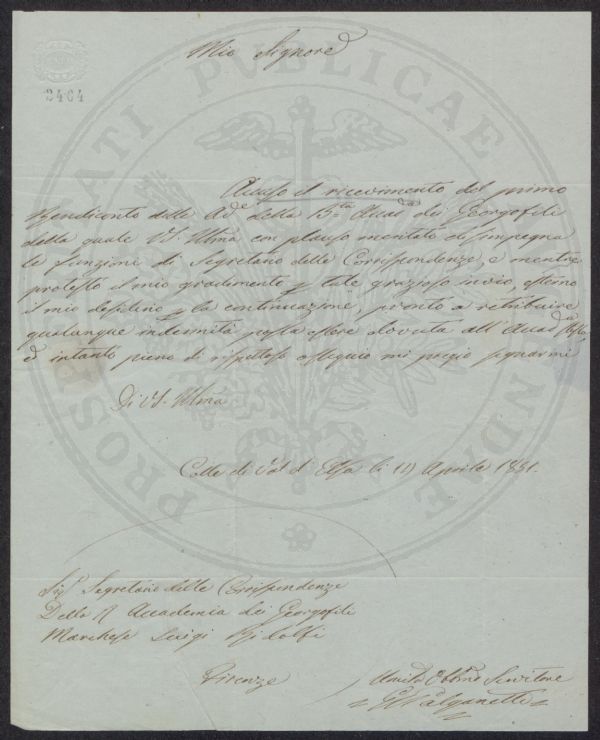 Mio Signore
2464
PROSPERITATI PUBLICAE AUGENDAE
Accuso il ricevimento del primo
Rendiconto delle Ad.e della R.a Accad.a dei Georgofili
della quale V.S. Ill.ma con plauso meritato disimpegna
le funzioni di Segretario delle Corrispondenze, e mentre
protesto il mio gradimento p tale grazioso invio, esterno
il mio desiderio p la continuazione, pronto a retribuire
qualunque indennità possa essere dovuta all' Accad.a
ed intanto pieno di rispettoso ossequio mi pregio segnarmi
Di V.S. Ill.ma
Colle di Val d'Elsa li Aprile 1851.
Sig.r Segretario delle Corrispondenze
Della R Accademia dei Georgofili
Marchese Luigi Ridolfi
Firenze
Umil.mo Obb.mo Servitore